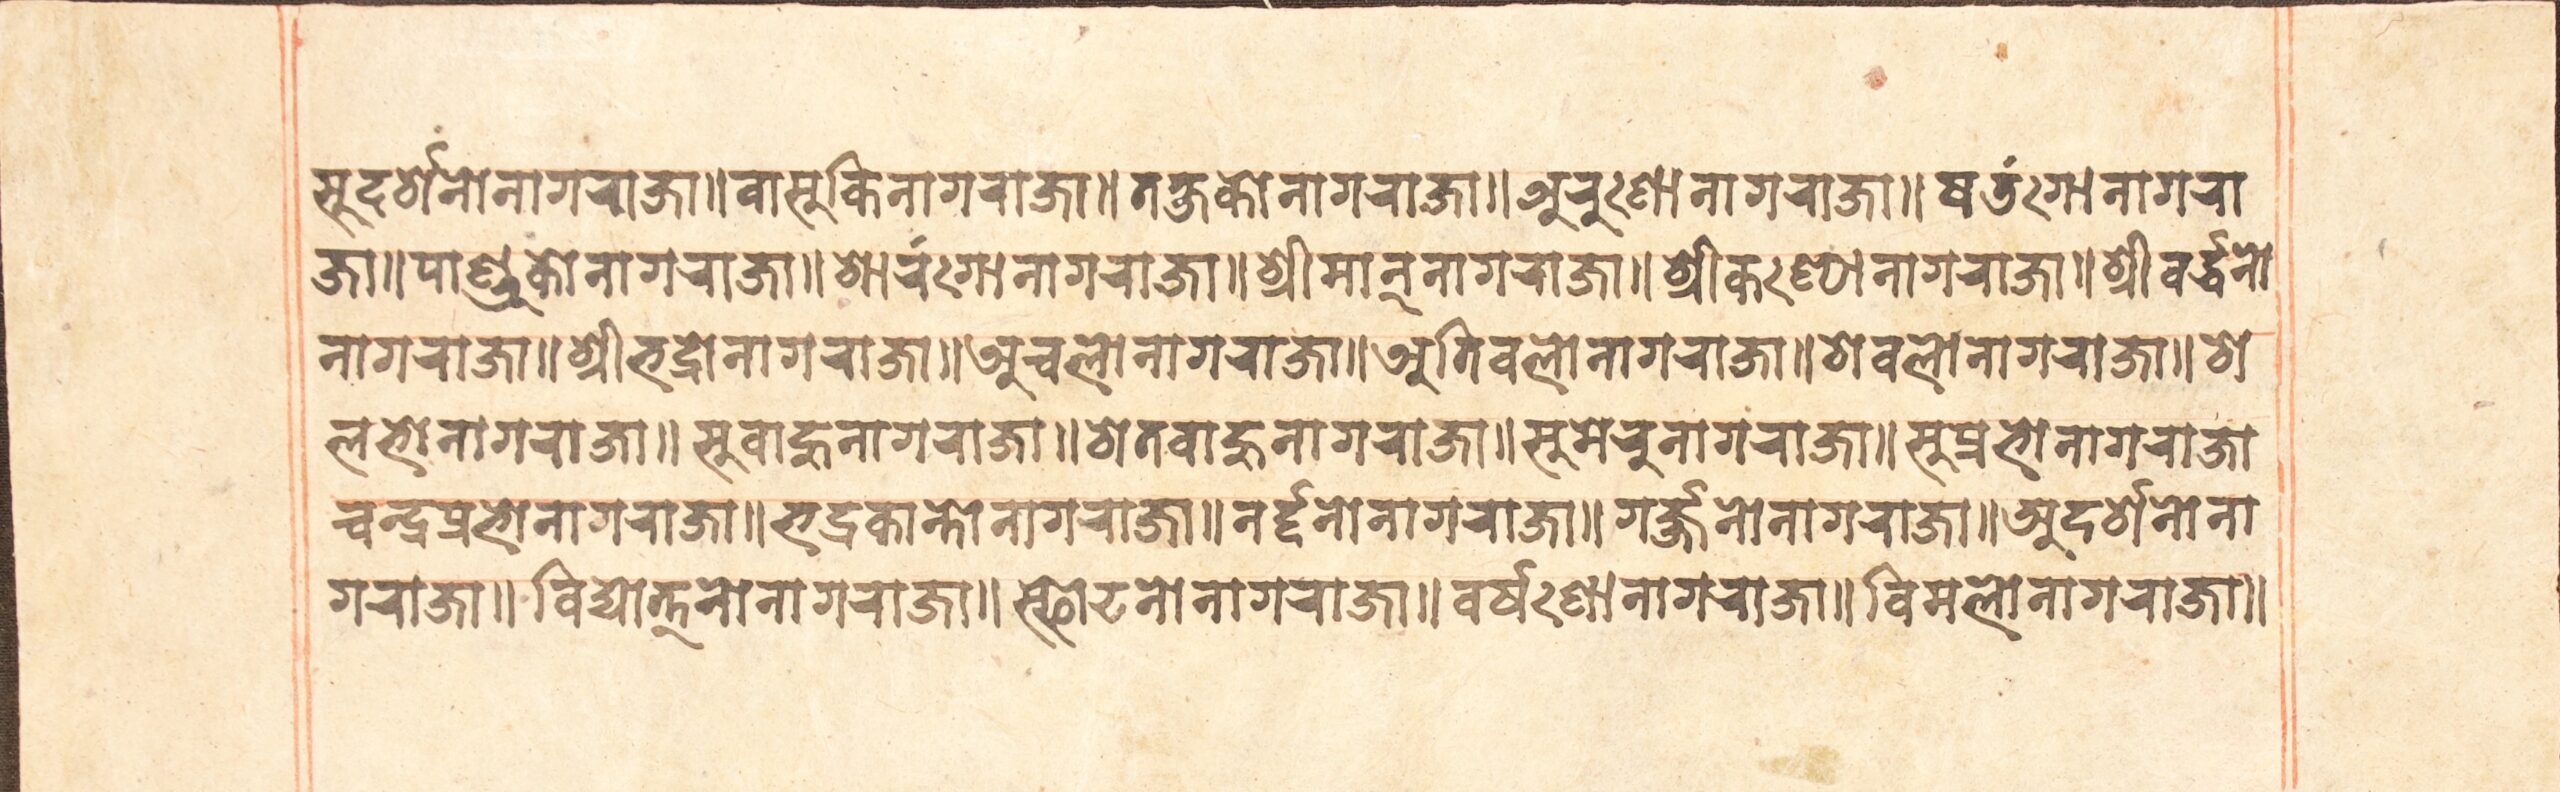 सुदर्शनोनागराजा॥वासुकिनागराजा॥तक्षकोनागराजा॥अरुणोनागराजा॥षतंगोनागरा
जा॥पाण्डुकोनागराजा॥शारंगोनागराजा॥श्रीमान्नागराजा॥श्रीकण्ठोनागराजा॥श्रीवर्द्धनो
नागराजा॥श्रीभद्रोनागराजा॥अचलोनागराजा॥अतिवलोनागराजा॥शेवलोनागराजा॥शे
लभोनागराजा॥सुवाहुनागराजा॥शेतवाहुनागराजा॥सुमेरुनागराजा॥सुप्रभोनागराजा
चन्द्रप्रभोनागराजा॥भद्रकान्तोनागराजा॥नर्द्दनोनागराजा॥गर्ज्जनोनागराजा॥अदर्शनोना
गराजा॥विद्योत्नोनागराजा॥स्फोटनोनागराजा॥वर्षणोनागराजा॥विमलोनागराजा॥